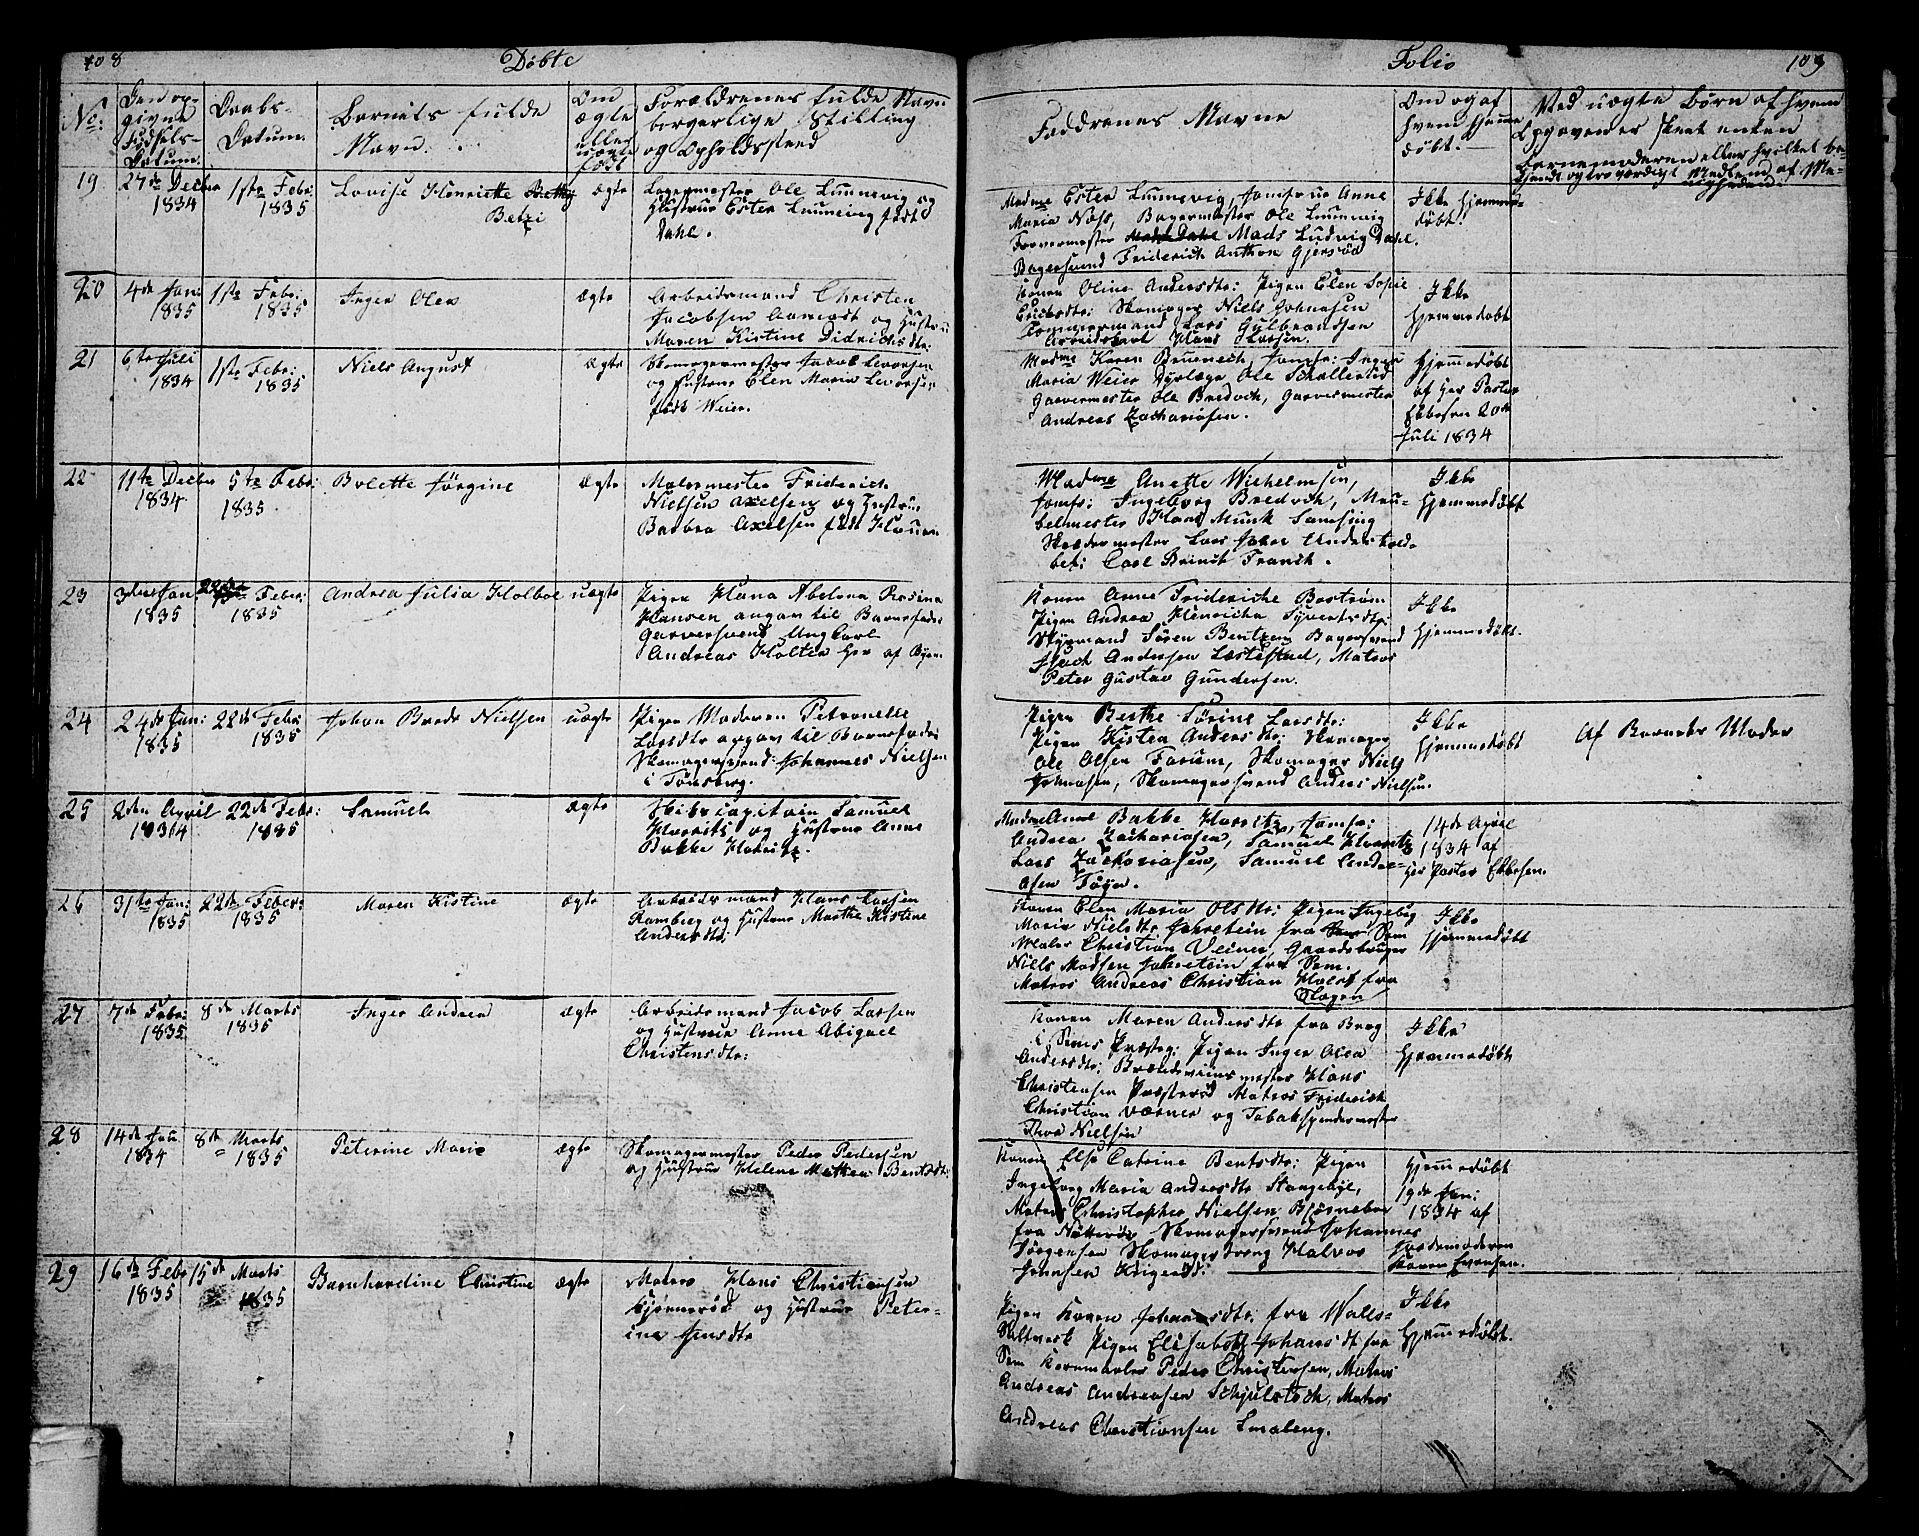 108
Døbte
No:
Den op-
givne
Fødsels-
Datum.
Daabs-
Datum.
Barnets fulde
Navn.
Om
ægte
eller
uægte
født
Forældrenes fulde Navn
borgerlige Stilling
og Opholdssted
19
27de Decbr
1834
1ste Febr:
1835
Lovise Henriette
Betzi
ægte
Ole Lunnevig og
Hustrue Ester Lunnevig født
Dahl.
20
4de Jan:
1835
1ste Febr:
1835
Inger Olea
ægte
Arbeidsmand Christen
Jacobsen Aamodt og Hustru
Maren Kistine Didrichsdtr:
21
6te Juli
1834
1ste Febr:
1835
Niels August
ægte
Skomagermester Jacob Levorsen
og Hustrue Elen Maria Levorsen
født Weier.
22
11te Decbr
1834
5te Febr:
1835
Bolette Jørgine
ægte
Malermester Friderich
Nielsen Axelsen og Hustrue
Barbra Axelsen født
23
3die Jan
1835
22de Febr:
1835
Andrea Julia Holboe
uægte
Pigen Hana Abelona Rosina
Hansen angav til Barnefader
Garversvend Ung Carl
Andreas Holter her af Byen
24
24de Jan:
1835
22de Febr
1835
Johan Brede Nielsen
uægte
Pigen Maderen Petronelle
Larsdtr angav til Barnefader
Skomagersvend: Johannes Nielsen
i Tønsberg.
25
2den April
1834
22de Febr:
1835
Samuel
ægte
Skibscapitain Samuel
Horritz og Hustrue Anne
Bakke Horritz.
26
31te Jan:
1835
22de Feber:
1835
Maren Kistine
ægte
Arbeidsmand Hans Larsen
Ramberg og Hustrue Marthe Kistine
Andersdtr:
27
7de Febr:
1835
8de Marts
1835
Inger Andrea
ægte
Arbeidsmand Jacob Larsen
og Hustrue Anne Abigael
Christensdtr:
28
14de Jan
1834
8de Marts
1835
Peterine Marie
ægte
Skomagermester Peder Pedersen
og Hustrue Helene Mathea Bentsdtr:
29
16de Febr
1835
15de Marts
1835
Barnhardine Christine
ægte
Matros Hans Christiansen
Bjørnerød og Hustrue Peter-
ine Jensdtr
Folio
109
Faddrenes Navne
Om og af
hvem hjemme
døbt.
Ved uægte Børn af hvem
Opgaven er skeet enten
Barnemoderen eller hvilket be-
kjendt og troværdigt Medlem af Me-
nigheden
Madme Ester Lunnevig, Jomfrue Anne
Maria Næss, Bagermester Ole Lunnevig
Farvermester Mads Ludvig Dahl.
Bagersvend Friderich Anthon Gjersøe
Ikke hjemme-
døbt.
Konen Oline Andersdtr: Pigen Elen Sofie
Ericksdtr: Skomager Niels Johnasen
Tømmermand Lars Gulbrandsen
Arbeidskarl Hans Larsen.
Ikke
hjemmedøbt
Madme Karen Bruenech, Jomfr: Inger
Maria Weier Dyrlæge Ole Schallerud
Garvermester Ole Bredoch, Garvermester
Andreas Zachariasen.
Hjemmedøbt
af Her Pastor
Ebbesen 20de
Juli 1834
Madme Anette Wichelmsen,
Jomfr: Ingeborg Bredoch, Meu-
belmester Hans Munk Samsing
Skrædermester Lars
Carl Brindt Franck.
Ikke
hjemmedøbt
Konen Anne Friderikke Bostrøm
Pigen Andrea Henricha Syvertsdtr:
Styrmand Søren Bentzen Bagersvend
Isach Andersen Læstestad, Matros
Peter Gustav Gundersen.
Ikke
hjemmedøbt.
Pigen Berthe Sørine Larsdtr:
Pigen Kisten Andersdtr: Skomager
Ole Olsen Farum, Skomager Niels
Johnasen, Skomagersvend Anders Nielsen.
Ikke
hjemmedøbt
Af Barnets Moder
Madme Anne Bakke Horritz, Jomfr:
Andrea Zachariasen, Samuel Horritz
Lars Zachariasen, Samuel Andre-
asen Føyn.
14de April
1834 af
Her Pastor Ebbesen.
Konen Elen Maria Olsdtr: Pigen Ingebog
Maria Nielsdtr Jahrstein fra Sem
Maler Christian Veiner, Gaardsbruger
Niels Madsen Jahrstein fra Sem.
Matros Andreas Christian Holst fra
Slagen
Ikke
hjemmedøbt
Konen Maren Andersdtr fra Berg
i Sems Præsteg: Pigen Inger Olea
Andersdtr: Brændeviinsmester Hans
Christensen Præsterød Matros Friderich
Christian Værner og Tobakspindermester
Thor Nielsen
Ikke
hjemmedøbt
Konen Else Catrine Bentsdtr: Pigen
Ingeborg Maria Andersdtr Stangebye,
Matros Christopher Nielsen Bjørnebo
fra Nøtterøe Skomagersvend Johannes
Jørgensen Skomagerdreng Halvor
Jonnsen Krigerød:
Hjemmedøbt
19de Jan:
1834 af
Jordemoderen
Konen Evensen.
Pigen Karen Johansdtr: fra Walle-
Saltverk Pigen Elisabeth Johansdt fra
Sem Kornmaaler Peder Christensen, Matros
Andreas Andreasen Schjulstoch, Matros
Andreas Christiansen Smaleng.
Ikke
hjemmedøbt.